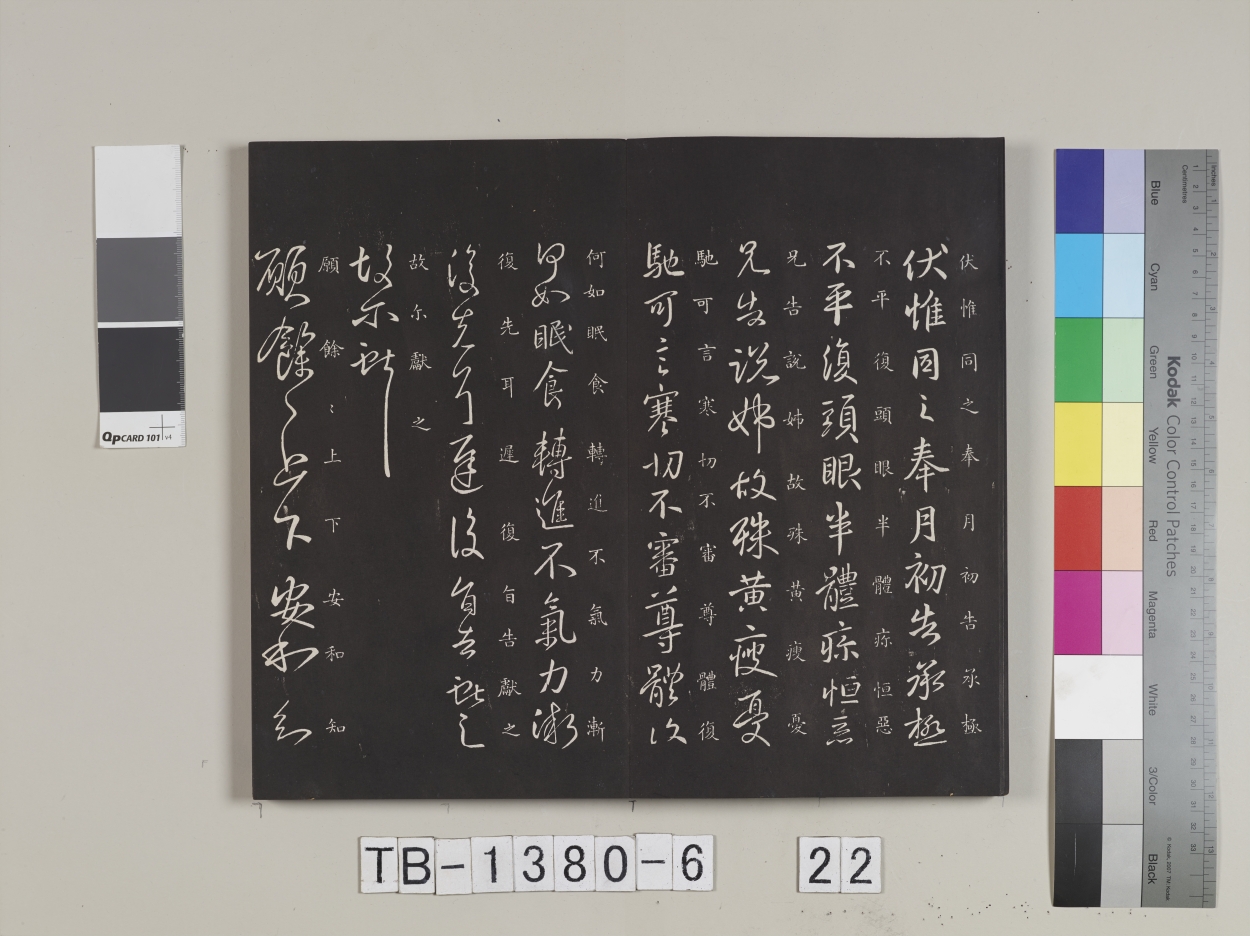 伏惟同之奉月初告承極
伏惟同之奉月初告承極
不平復頭眼半體疼恒惡
不平復頭眼半體疼恒惡
兄告說姊故殊黄瘦憂
兄告說姊故殊黄瘦憂
馳可言寒切不審尊體復
馳可言寒切不審尊體復
何如眠食轉進不氣力漸
何如眠食轉進不氣力漸
復先耳遲復旨告獻之
復先耳遲復旨告獻之
故尓獻之
故尓獻之
願餘〻上下安和知
願餘〻上下安和知
QPCARD 101 v4
TB-1380-6
22
Kodak Color Control Patches
Blue
Cyan
Green
Yellow
Red
Magenta
White
3/Color
Black
Inches
Centimetres